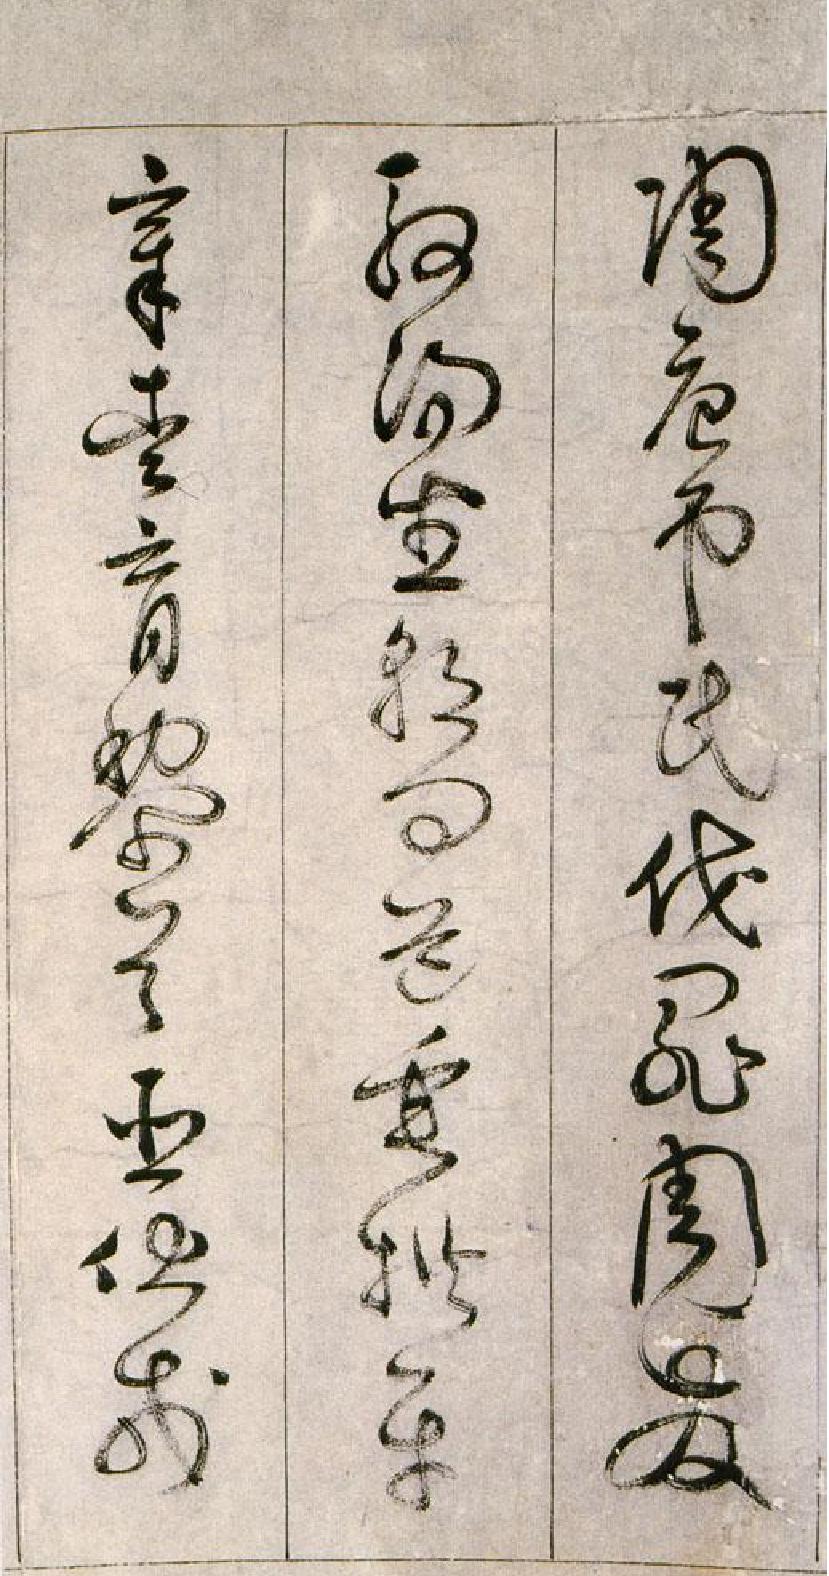 陶唐吊民伐罪周發
殷湯坐朝問道垂拱平
章愛育黎首臣伏戎